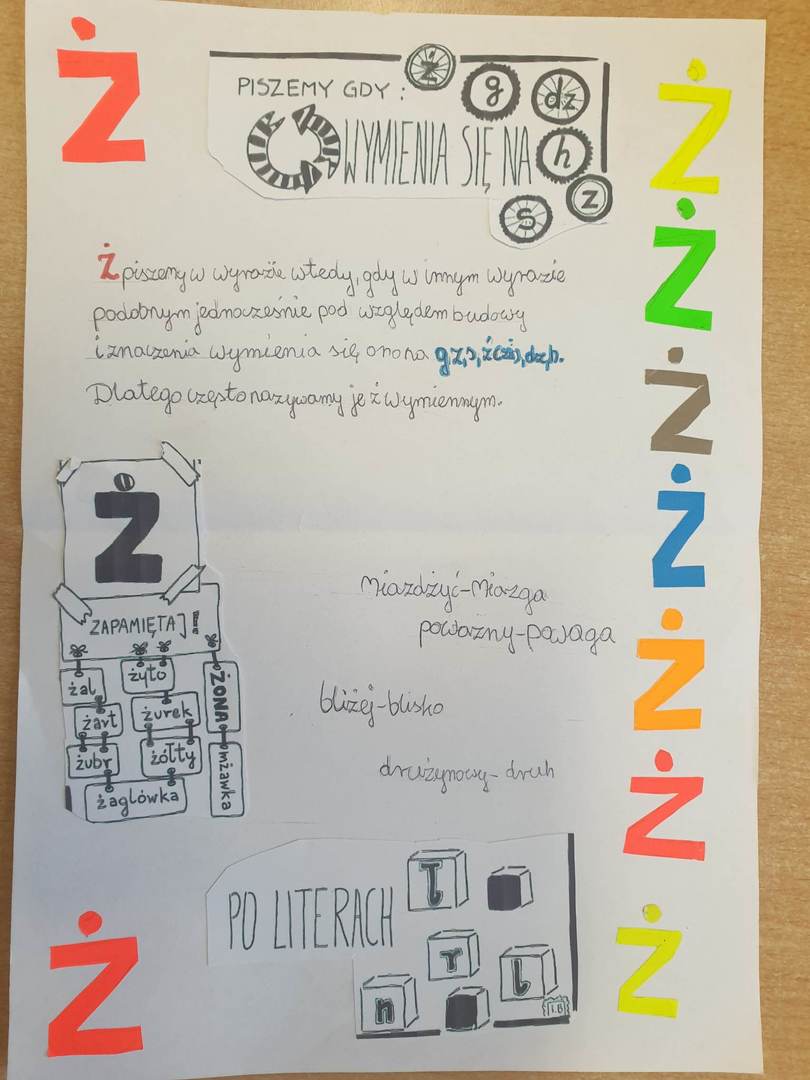 Ż
PISZEMY GDY:
WYMIENIA SIĘ NA
g
dz
h
z
s
Ż piszemy w wyrazie wtedy, gdy w innym wyrazie
podobnym jednocześnie pod względem budowy
i znaczenia wymienia się ono na g,z,s,ź(zi),dz,h.
Dlatego często nazywamy je ż wymiennym.
Ż
ZAPAMIĘTAJ!
żal
żyto
ŻONA
żart
żurek
żubr
żółty
mżawka
żaglówka
miażdżyć-miazga
poważny-powaga
bliżej-blisko
drużynowy-druh
PO LITERACH
r
l
n
I.B
Ż
Ż
Ż
Ż
Ż
Ż
Ż
Ż
Ż